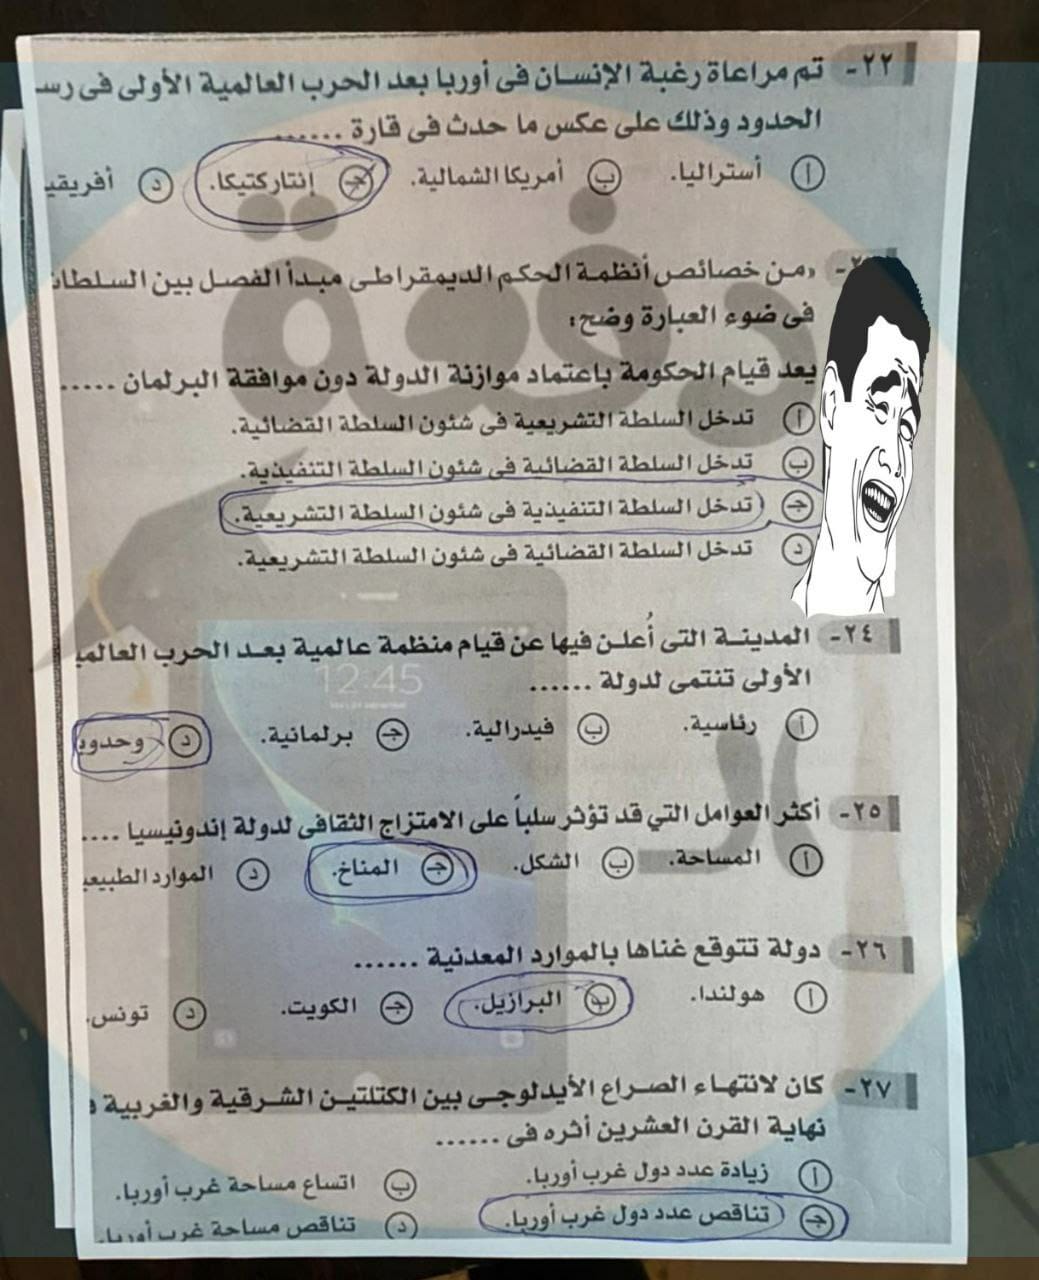 ٢٢- تم مراعاة رغبة الإنسان فى أوربا بعد الحرب العالمية الأولى فى
الحدود وذلك على عكس ما حدث فى قارة ......
أ أستراليا. ب أمريكا الشمالية. ج إنتاركتيكا. د
«من خصائص أنظمة الحكم الديمقراطى مبدأ الفصل بين
فى ضوء العبارة وضح:
يعد قيام الحكومة باعتماد موازنة الدولة دون موافقة البرلمان .....
أ تدخل السلطة التشريعية فى شئون السلطة القضائية.
ب تدخل السلطة القضائية فى شئون السلطة التنفيذية.
ج تدخل السلطة التنفيذية فى شئون السلطة التشريعية.
د تدخل السلطة القضائية فى شئون السلطة التشريعية.
12:45
٢٤- المدينة التى أُعلن فيها عن قيام منظمة عالمية بعد الحرب
الأولى تنتمى لدولة ......
أ رئاسية. ب فيدرالية. ج برلمانية. د
٢٥- أكثر العوامل التي قد تؤثر سلباً على الامتزاج الثقافى لدولة إندونيسيا ....
أ المساحة. ب الشكل. ج المناخ. د الموارد
٢٦- دولة تتوقع غناها بالموارد المعدنية ......
أ هولندا. ب البرازيل. ج الكويت. د تونس.
٢٧- كان لانتهاء الصراع الأيدلوجى بين الكتلتين الشرقية والغربية
نهاية القرن العشرين أثره فى ......
أ زيادة عدد دول غرب أوربا. ب اتساع مساحة غرب أوربا.
ج تناقص عدد دول غرب أوربا. د تناقص مساحة غرب أوربا.